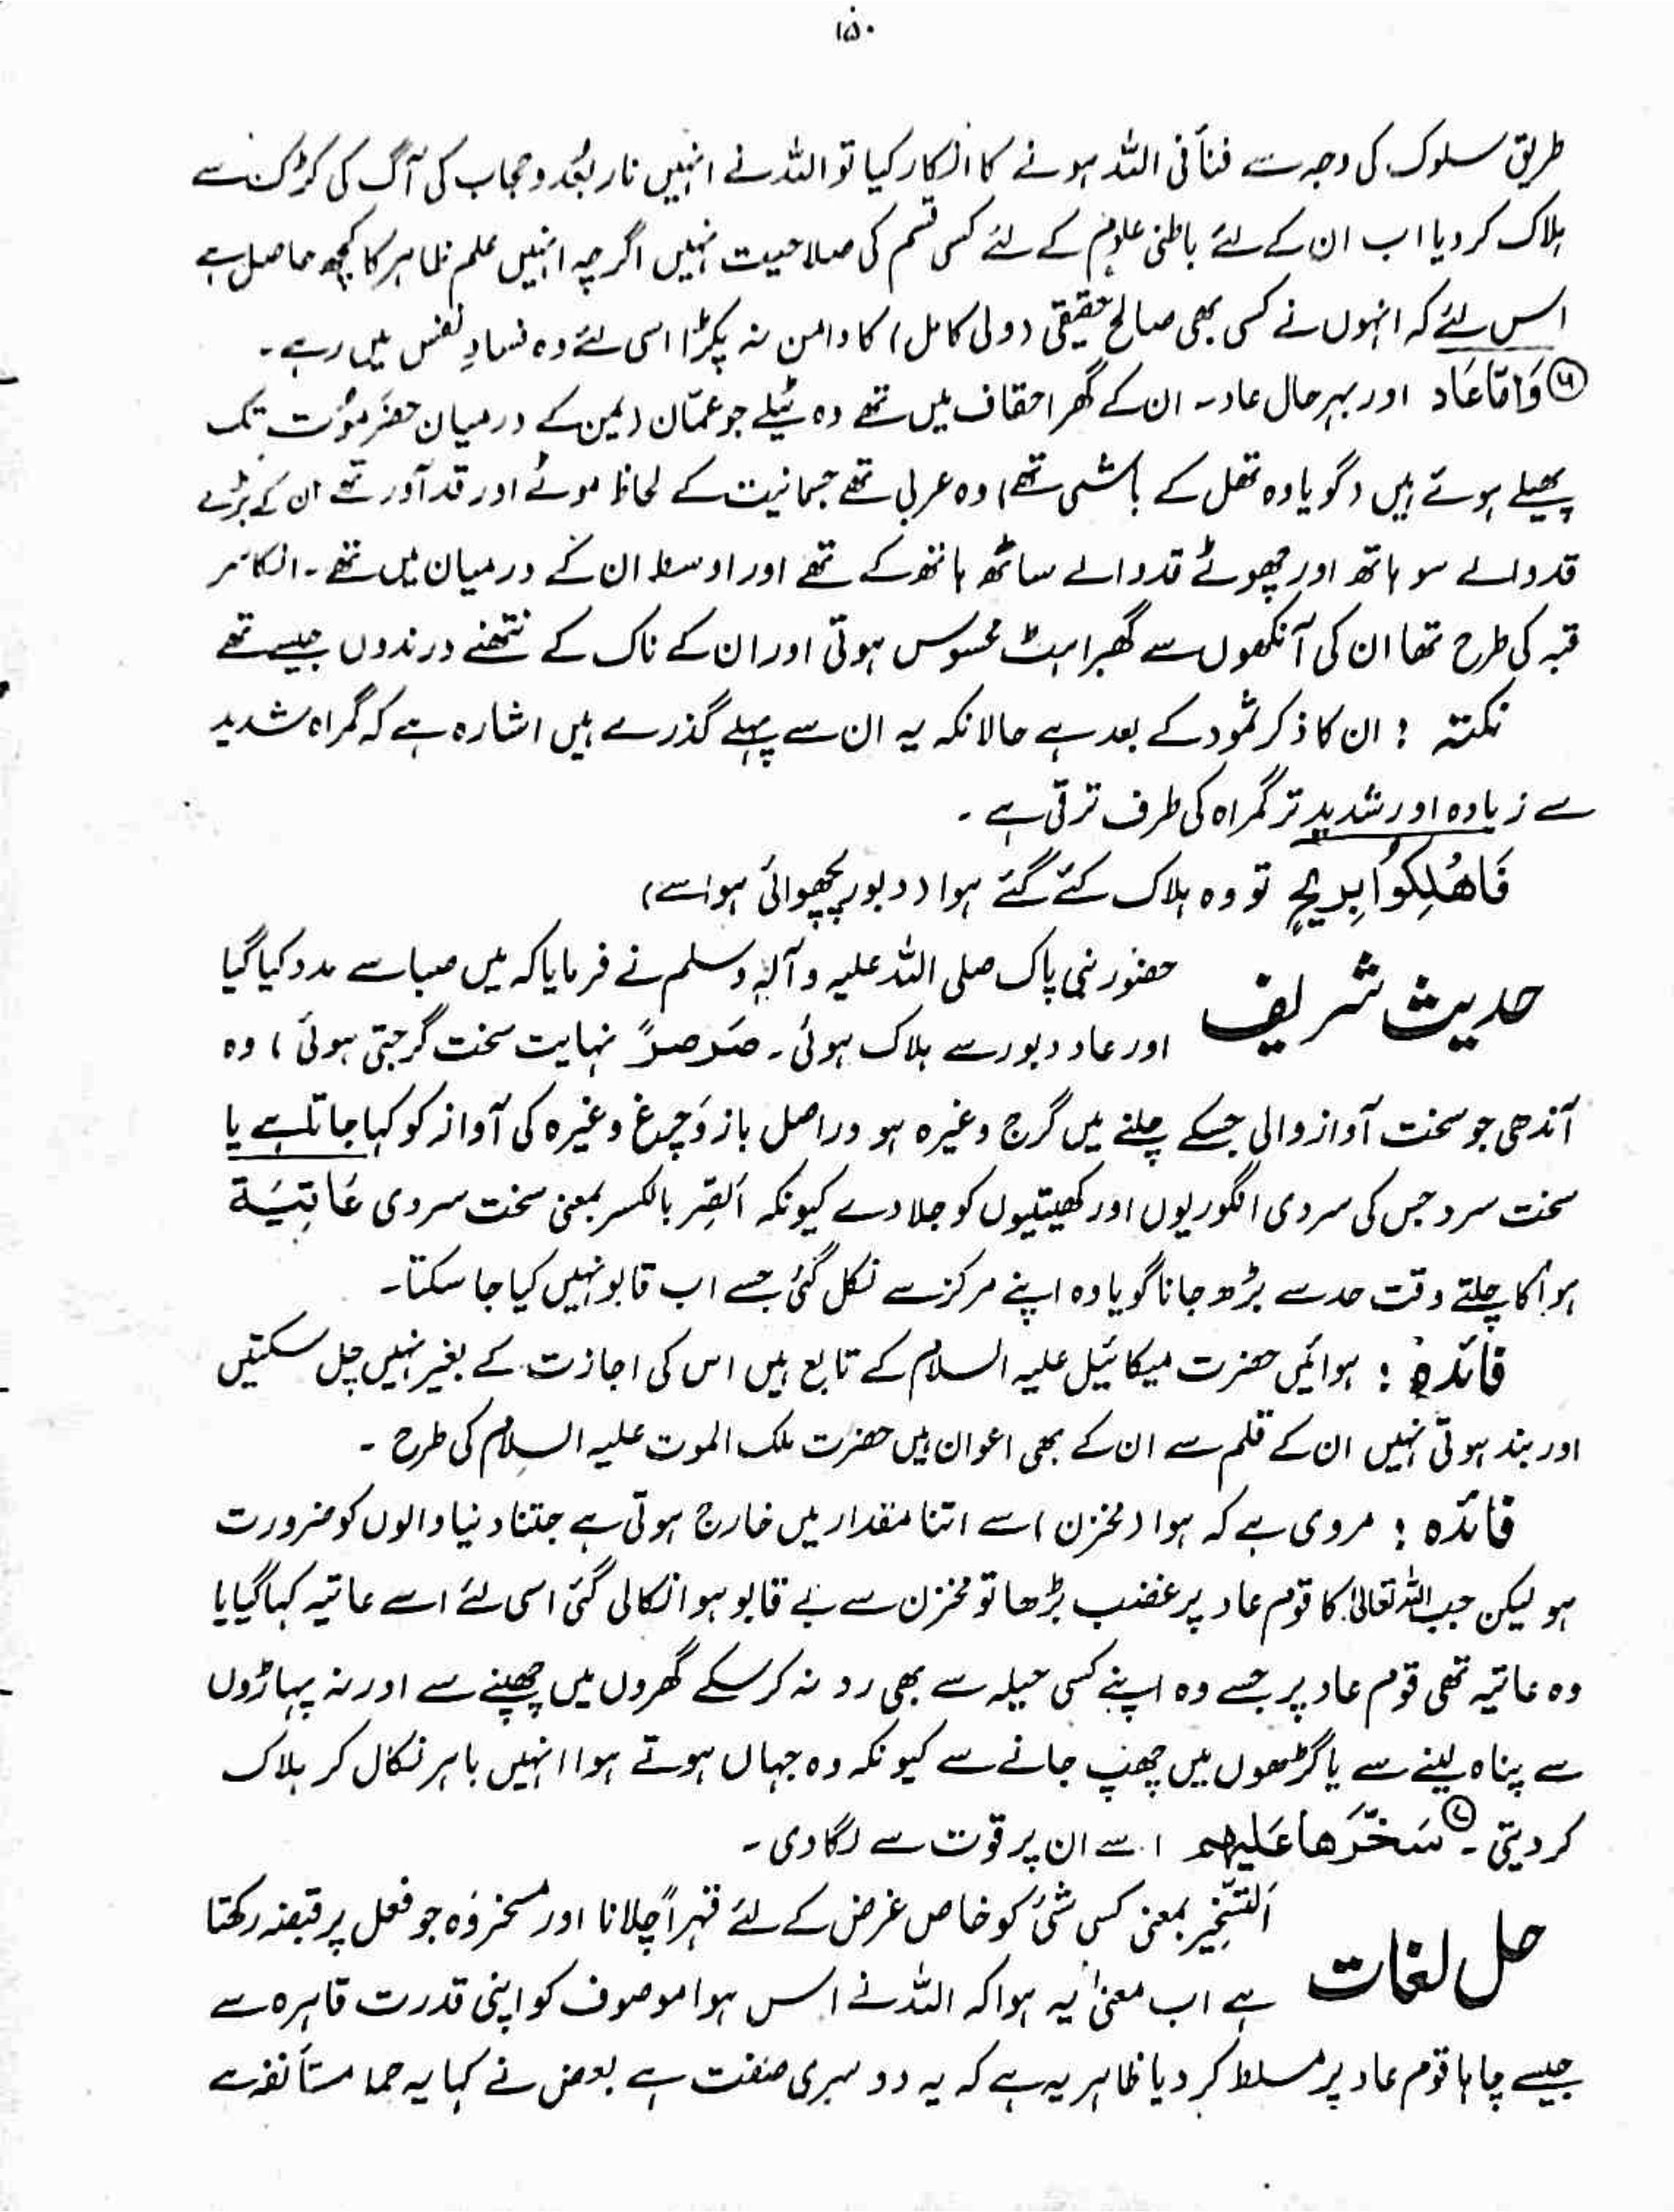 ۱۵۰
طریق سلوک کی وجہ سے فنا فی اللہ ہونے کا انکار کیا تو اللہ نے انہیں نار بُعد و حجاب کی آگ کی کڑک سے
ہلاک کر دیا اب ان کے لئے باطنی علوم کے لئے کسی قسم کی صلاحیت نہیں اگرچہ انہیں علم ظاہر کا کچھ حاصل ہے
اس لئے کہ انہوں نے کسی بھی صالح حقیقی (ولی کامل) کا دامن نہ پکڑا اسی لئے وہ فسادِ نفس میں رہے۔
⑥ وَامَّا عَاد اور بہرحال عاد۔ ان کے گھر احقاف میں تھے وہ ٹیلے جو عمّان (یمن کے درمیان حضرَموُت تک
پھیلے ہوئے ہیں (گویا وہ تھل کے باشی تھے) وہ عربی تھے جسمانیت کے لحاظ موٹے اور قد آور تھے ان کے بڑے
قد والے سو ہاتھ اور چھوٹے قد والے ساٹھ ہاتھ کے تھے اور اوسط ان کے درمیان میں تھے۔ انکا سر
قبہ کی طرح تھا ان کی آنکھوں سے گھبراہٹ محسوس ہوتی اور ان کے ناک کے نتھنے درندوں جیسے تھے
نکتہ : ان کا ذکر ثمود کے بعد ہے حالانکہ یہ ان سے پہلے گذرے ہیں اشارہ ہے کہ گمراہ شدید
سے زیادہ اور شدید تر گمراہ کی طرف ترقی ہے۔
فَاھُلِکُوُا بِرِیحٍ تو وہ ہلاک کئے گئے ہوا (دبور پچھوائی ہوا سے)
حدیث شریف حضور نبی پاک صلی اللہ علیہ وآلہٖ وسلم نے فرمایا کہ میں صبا سے مدد کیا گیا
اور عاد دبور سے ہلاک ہوئی۔ صَرْصَرٍ نہایت سخت گرجتی ہوئی) وہ
آندھی جو سخت آواز والی جسکے چلنے میں گرج وغیرہ ہو دراصل باز وَ چرغ وغیرہ کی آواز کو کہا جاتا ہے یا
سخت سرد جس کی سردی انگوریوں اور کھیتیوں کو جلا دے کیونکہ اَلصِّر بالکسر بمعنی سخت سردی عَاتِیَۃ
ہوا کا چلتے وقت حد سے بڑھ جانا گویا وہ اپنے مرکز سے نکل گئی جسے اب قابو نہیں کیا جا سکتا۔
فائدہ : ہوائیں حضرت میکائیل علیہ السلام کے تابع ہیں اس کی اجازت کے بغیر نہیں چل سکتیں
اور بند ہوتی نہیں ان کے قلم سے ان کے بھی اعوان ہیں حضرت ملک الموت علیہ السلام کی طرح۔
فائدہ : مروی ہے کہ ہوا (مخزن) سے اتنا مقدار میں خارج ہوتی ہے جتنا دنیا والوں کو ضرورت
ہو لیکن جب اللہ تعالیٰ کا قوم عاد پر غضب بڑھا تو مخزن سے بے قابو ہوا نکالی گئی اسی لئے اسے عاتیہ کہا گیا یا
وہ عاتیہ تھی قوم عاد پر جسے وہ اپنے کسی حیلہ سے بھی رد نہ کر سکے گھروں میں چھپنے سے اور نہ پہاڑوں
سے پناہ لینے سے یا گڑھوں میں چھپ جانے سے کیونکہ وہ جہاں ہوتے ہوا انہیں باہر نکال کر ہلاک
کر دیتی۔ ⑦ سَخَّرَھا عَلیہِم اسے ان پر قوت سے لگا دی۔
حل لغات اَلتَّسْخِیر بمعنی کسی شئ کو خاص غرض کے لئے قہراً چلانا اور مسخر وَہ جو فعل پر قبضہ رکھتا
ہے اب معنیٰ یہ ہوا کہ اللہ نے اس ہوا موصوف کو اپنی قدرت قاہرہ سے
جیسے چاہا قوم عاد پر مسلط کر دیا ظاہر یہ ہے کہ یہ دوسری صفت ہے بعض نے کہا یہ مستأنفہ ہے